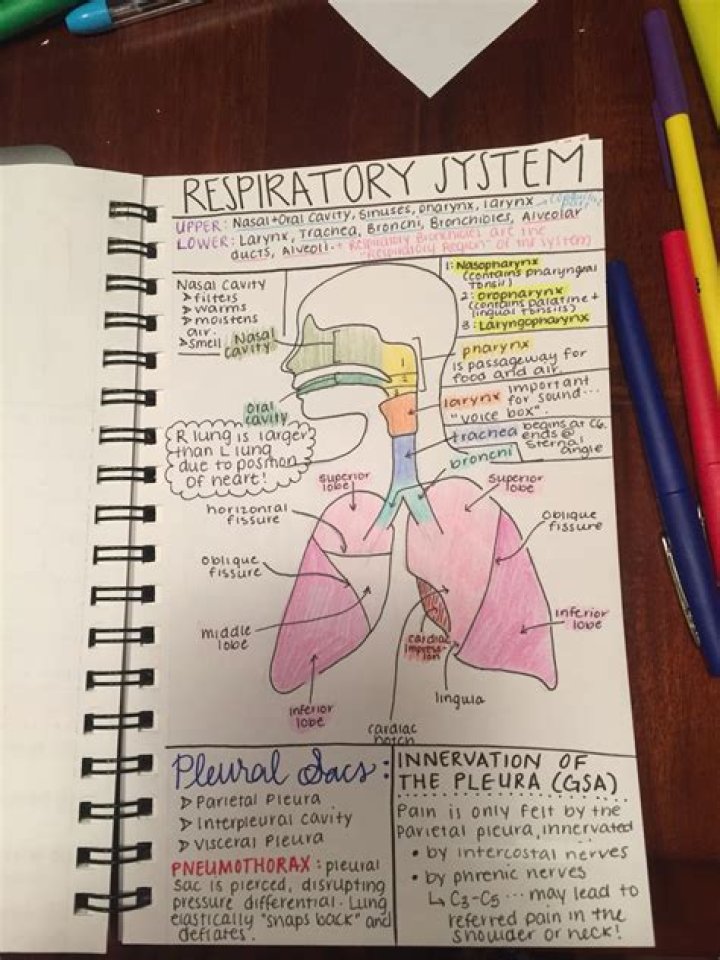 RESPIRATORY SYSTEM
UPPER: Nasal+Oral Cavity, Sinuses, pharynx, larynx →
LOWER: Larynx, Trachea, Bronchi, Bronchioles, Alveolar
ducts, Alveoli. * Respiratory Bronchioles are the
"Respiratory Region" of the system
Nasal Cavity
➤ filters
➤ warms
➤ moistens
air.
➤ Smell
Nasal
cavity
oral
cavity
1: Nasopharynx
(contains pharyngeal
tonsil)
2: oropharynx
(contains palatine +
lingual tonsils)
3: Laryngopharynx
1
2
3
pharynx
is passageway for
food and air.
larynx important
for sound...
"voice box".
trachea begins at C6,
ends @
sternal
angle
bronchi
R lung is larger
than L lung
due to position
of heart!
superior
lobe
horizontal
fissure
oblique
fissure
middle
lobe
inferior
lobe
superior
lobe
oblique
fissure
inferior
lobe
cardiac
impress-
ion
lingula
cardiac
notch
Pleural Sacs:
➤ Parietal Pleura
➤ Interpleural cavity
➤ Visceral Pleura
PNEUMOTHORAX: pleural
sac is pierced, disrupting
pressure differential. Lung
elastically "snaps back" and
deflates.
INNERVATION OF
THE PLEURA (GSA)
Pain is only felt by the
parietal pleura, innervated
• by intercostal nerves
• by phrenic nerves
↳ C3-C5 ... may lead to
referred pain in the
shoulder or neck!